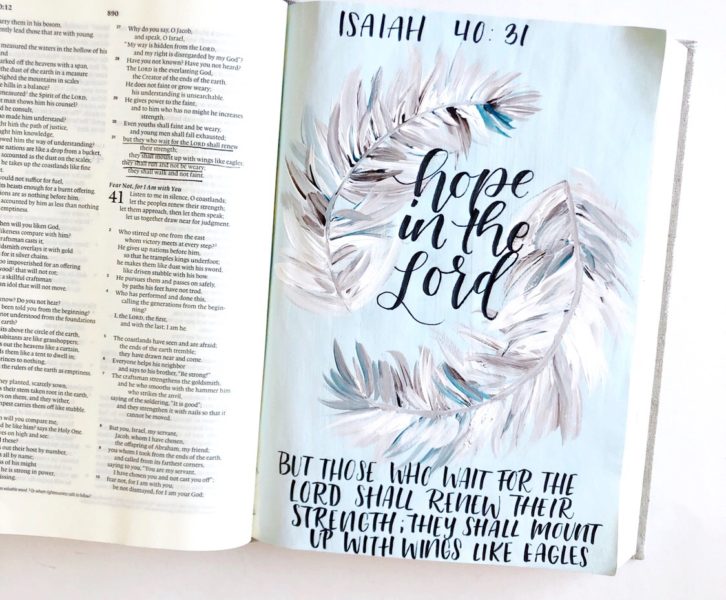 0:12
890
them in his bosom.
lead those that are young.
measured the waters in the hollow of his
off the heavens with a span,
the dust of the earth in a measure
the mountains in scales
hills in a balance?
measured the Spirit of the LORD,
man shows him his counsel?
he consult,
made him understand?
him the path of justice,
him knowledge,
him the way of understanding?
nations are like a drop from a bucket,
accounted as the dust on the scales;
he takes up the coastlands like fine
would not suffice for fuel,
beasts enough for a burnt offering.
nations are as nothing before him,
accounted by him as less than nothing
emptiness.
then will you liken God,
likeness compare with him?
craftsman casts it,
goldsmith overlays it with gold
for it silver chains.
too impoverished for an offering
wood that will not rot;
a skillful craftsman
an idol that will not move.
know? Do you not hear?
been told you from the beginning?
not understood from the foundations
earth?
sits above the circle of the earth,
inhabitants are like grasshoppers;
out the heavens like a curtain,
them like a tent to dwell in;
princes to nothing,
the rulers of the earth as emptiness.
they planted, scarcely sown,
has their stem taken root in the earth,
on them, and they wither,
tempest carries them off like stubble.
will you compare me,
be like him? says the Holy One.
eyes on high and see:
these?
out their host by number,
all by name,
of his might
he is strong in power,
missing.
27 Why do you say, O Jacob,
and speak, O Israel,
"My way is hidden from the LORD,
and my right is disregarded by my God"?
28 Have you not known? Have you not heard?
The LORD is the everlasting God,
the Creator of the ends of the earth.
He does not faint or grow weary;
his understanding is unsearchable.
29 He gives power to the faint,
and to him who has no might he increases
strength.
30 Even youths shall faint and be weary,
and young men shall fall exhausted;
31 but they who wait for the LORD shall renew
their strength;
they shall mount up with wings like eagles;
they shall run and not be weary;
they shall walk and not faint.
Fear Not, for I Am with You
41 Listen to me in silence, O coastlands;
let the peoples renew their strength;
let them approach, then let them speak;
let us together draw near for judgment.
2 Who stirred up one from the east
whom victory meets at every step?
He gives up nations before him,
so that he tramples kings underfoot;
he makes them like dust with his sword,
like driven stubble with his bow.
3 He pursues them and passes on safely,
by paths his feet have not trod.
4 Who has performed and done this,
calling the generations from the begin-
ning?
I, the LORD, the first,
and with the last; I am he.
5 The coastlands have seen and are afraid;
the ends of the earth tremble;
they have drawn near and come.
6 Everyone helps his neighbor
and says to his brother, "Be strong!"
7 The craftsman strengthens the goldsmith,
and he who smooths with the hammer him
who strikes the anvil,
saying of the soldering, "It is good";
and they strengthen it with nails so that it
cannot be moved.
8 But you, Israel, my servant,
Jacob, whom I have chosen,
the offspring of Abraham, my friend;
9 you whom I took from the ends of the earth,
and called from its farthest corners,
saying to you, "You are my servant,
I have chosen you and not cast you off";
10 fear not, for I am with you;
be not dismayed, for I am your God;
ISAIAH 40:31
hope
in the
Lord
BUT THOSE WHO WAIT FOR THE
LORD SHALL RENEW THEIR
STRENGTH; THEY SHALL MOUNT
UP WITH WINGS LIKE EAGLES